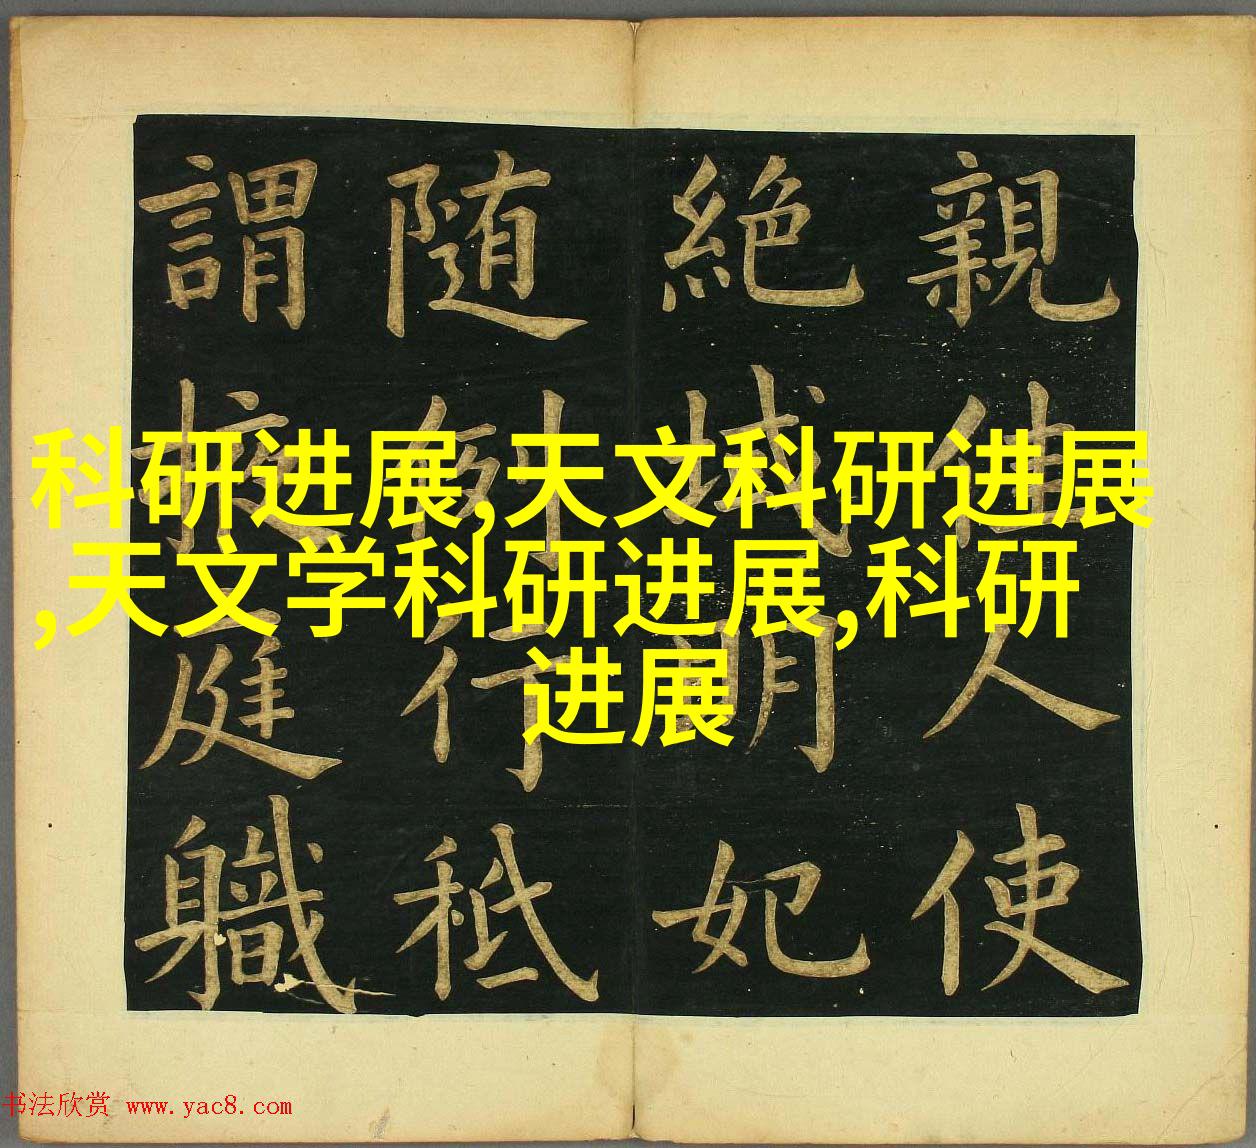 親人使
絶域明妃
随行秪
謂掖庭軄
科研进展,天文科研进展
,天文学科研进展,科研
进展
书法欣赏 www.yac8.com